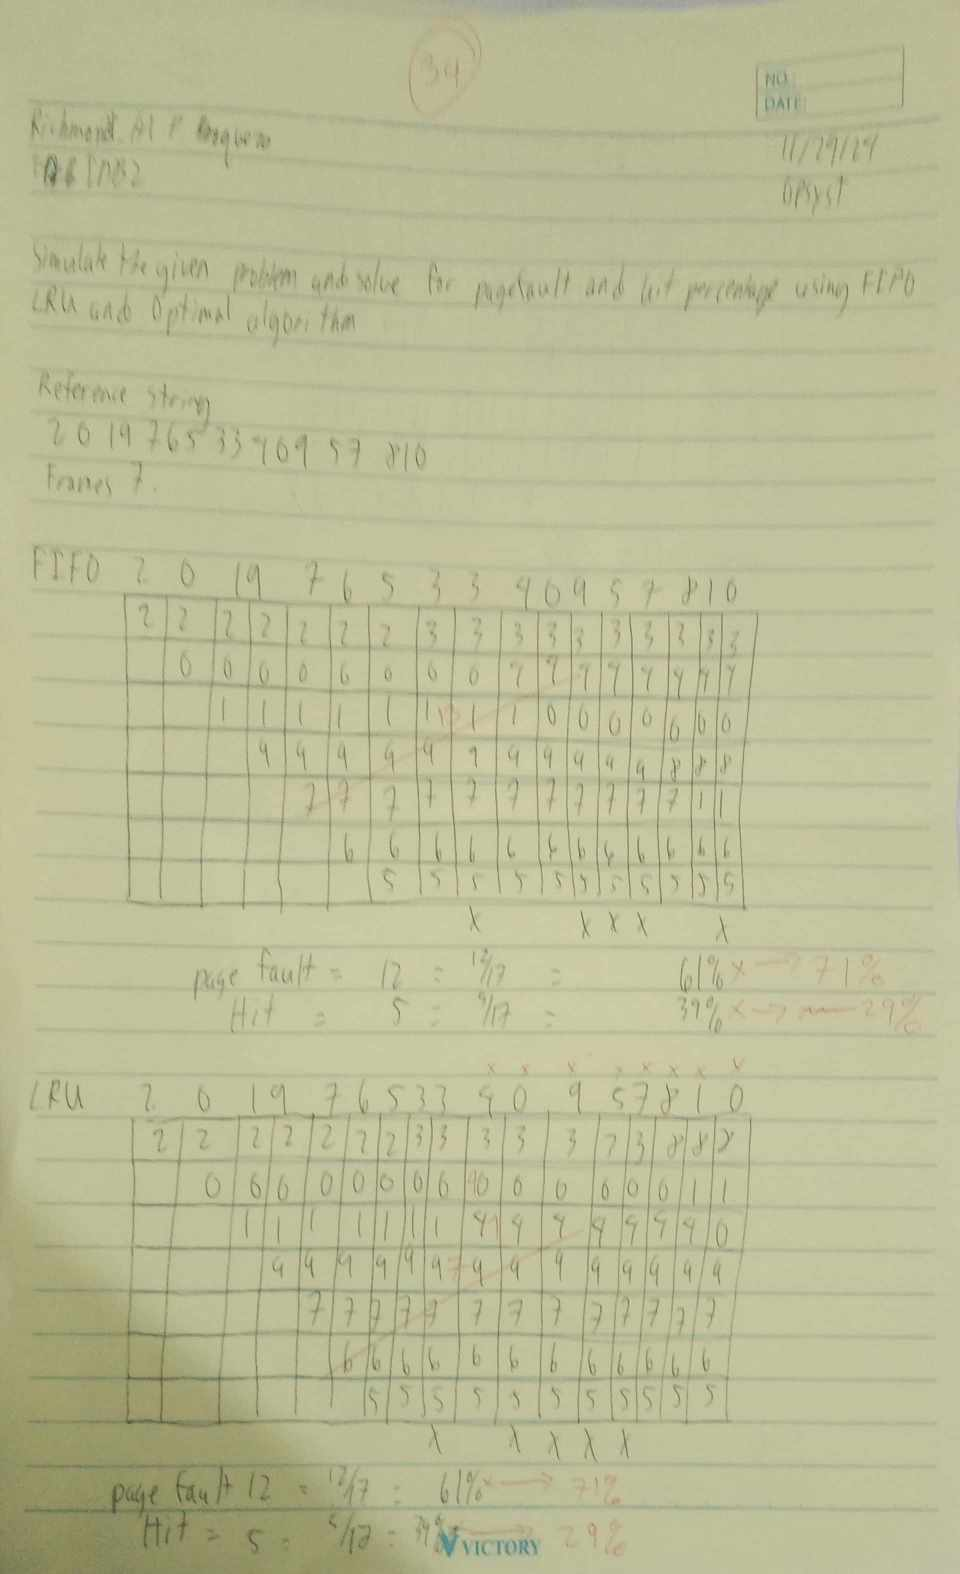 34
NO.
DATE:
Richmond Al P
11/29/24
OPsyst
Simulate the given problem and solve for pagefault and hit percentage using FIFO
LRU and Optimal algorithm
Reference string
2 0 19 765 33 909 57 810
Frames 7.
FIFO 2 0 19 7 6 5 3 3 9 0 9 5 7 8 1 0
2 2 2 2 2 2 2 3 3 3 3 3 3 3 3 3 3
0 0 0 0 0 0 0 0 9 9 9 9 9 9 9 9
1 1 1 1 1 1 1 1 0 0 0 0 0 0 0
9 9 9 9 9 9 9 9 9 9 9 8 8 8
7 7 7 7 7 7 7 7 7 7 7 1 1
6 6 6 6 6 6 6 6 6 6 6 6
5 5 5 5 5 5 5 5 5 5 5
x x x x x
page fault = 12 = 12/17 = 61% x → 71%
Hit = 5 = 5/17 = 39% x → 29%
LRU 2 0 19 7 6 5 3 3 9 0 9 5 7 8 1 0
2 2 2 2 2 2 2 3 3 3 3 3 3 3 8 8 8
0 0 0 0 0 0 0 0 0 0 0 0 0 0 1 1
1 1 1 1 1 1 1 9 9 9 9 9 9 9 0
9 9 9 9 9 9 9 9 9 9 9 9 9 9
7 7 7 7 7 7 7 7 7 7 7 7 7
6 6 6 6 6 6 6 6 6 6 6 6
5 5 5 5 5 5 5 5 5 5
x x x x x
page fault 12 = 12/17 = 61% x → 71%
Hit = 5 = 5/17 = 39% → 29%
VICTORY